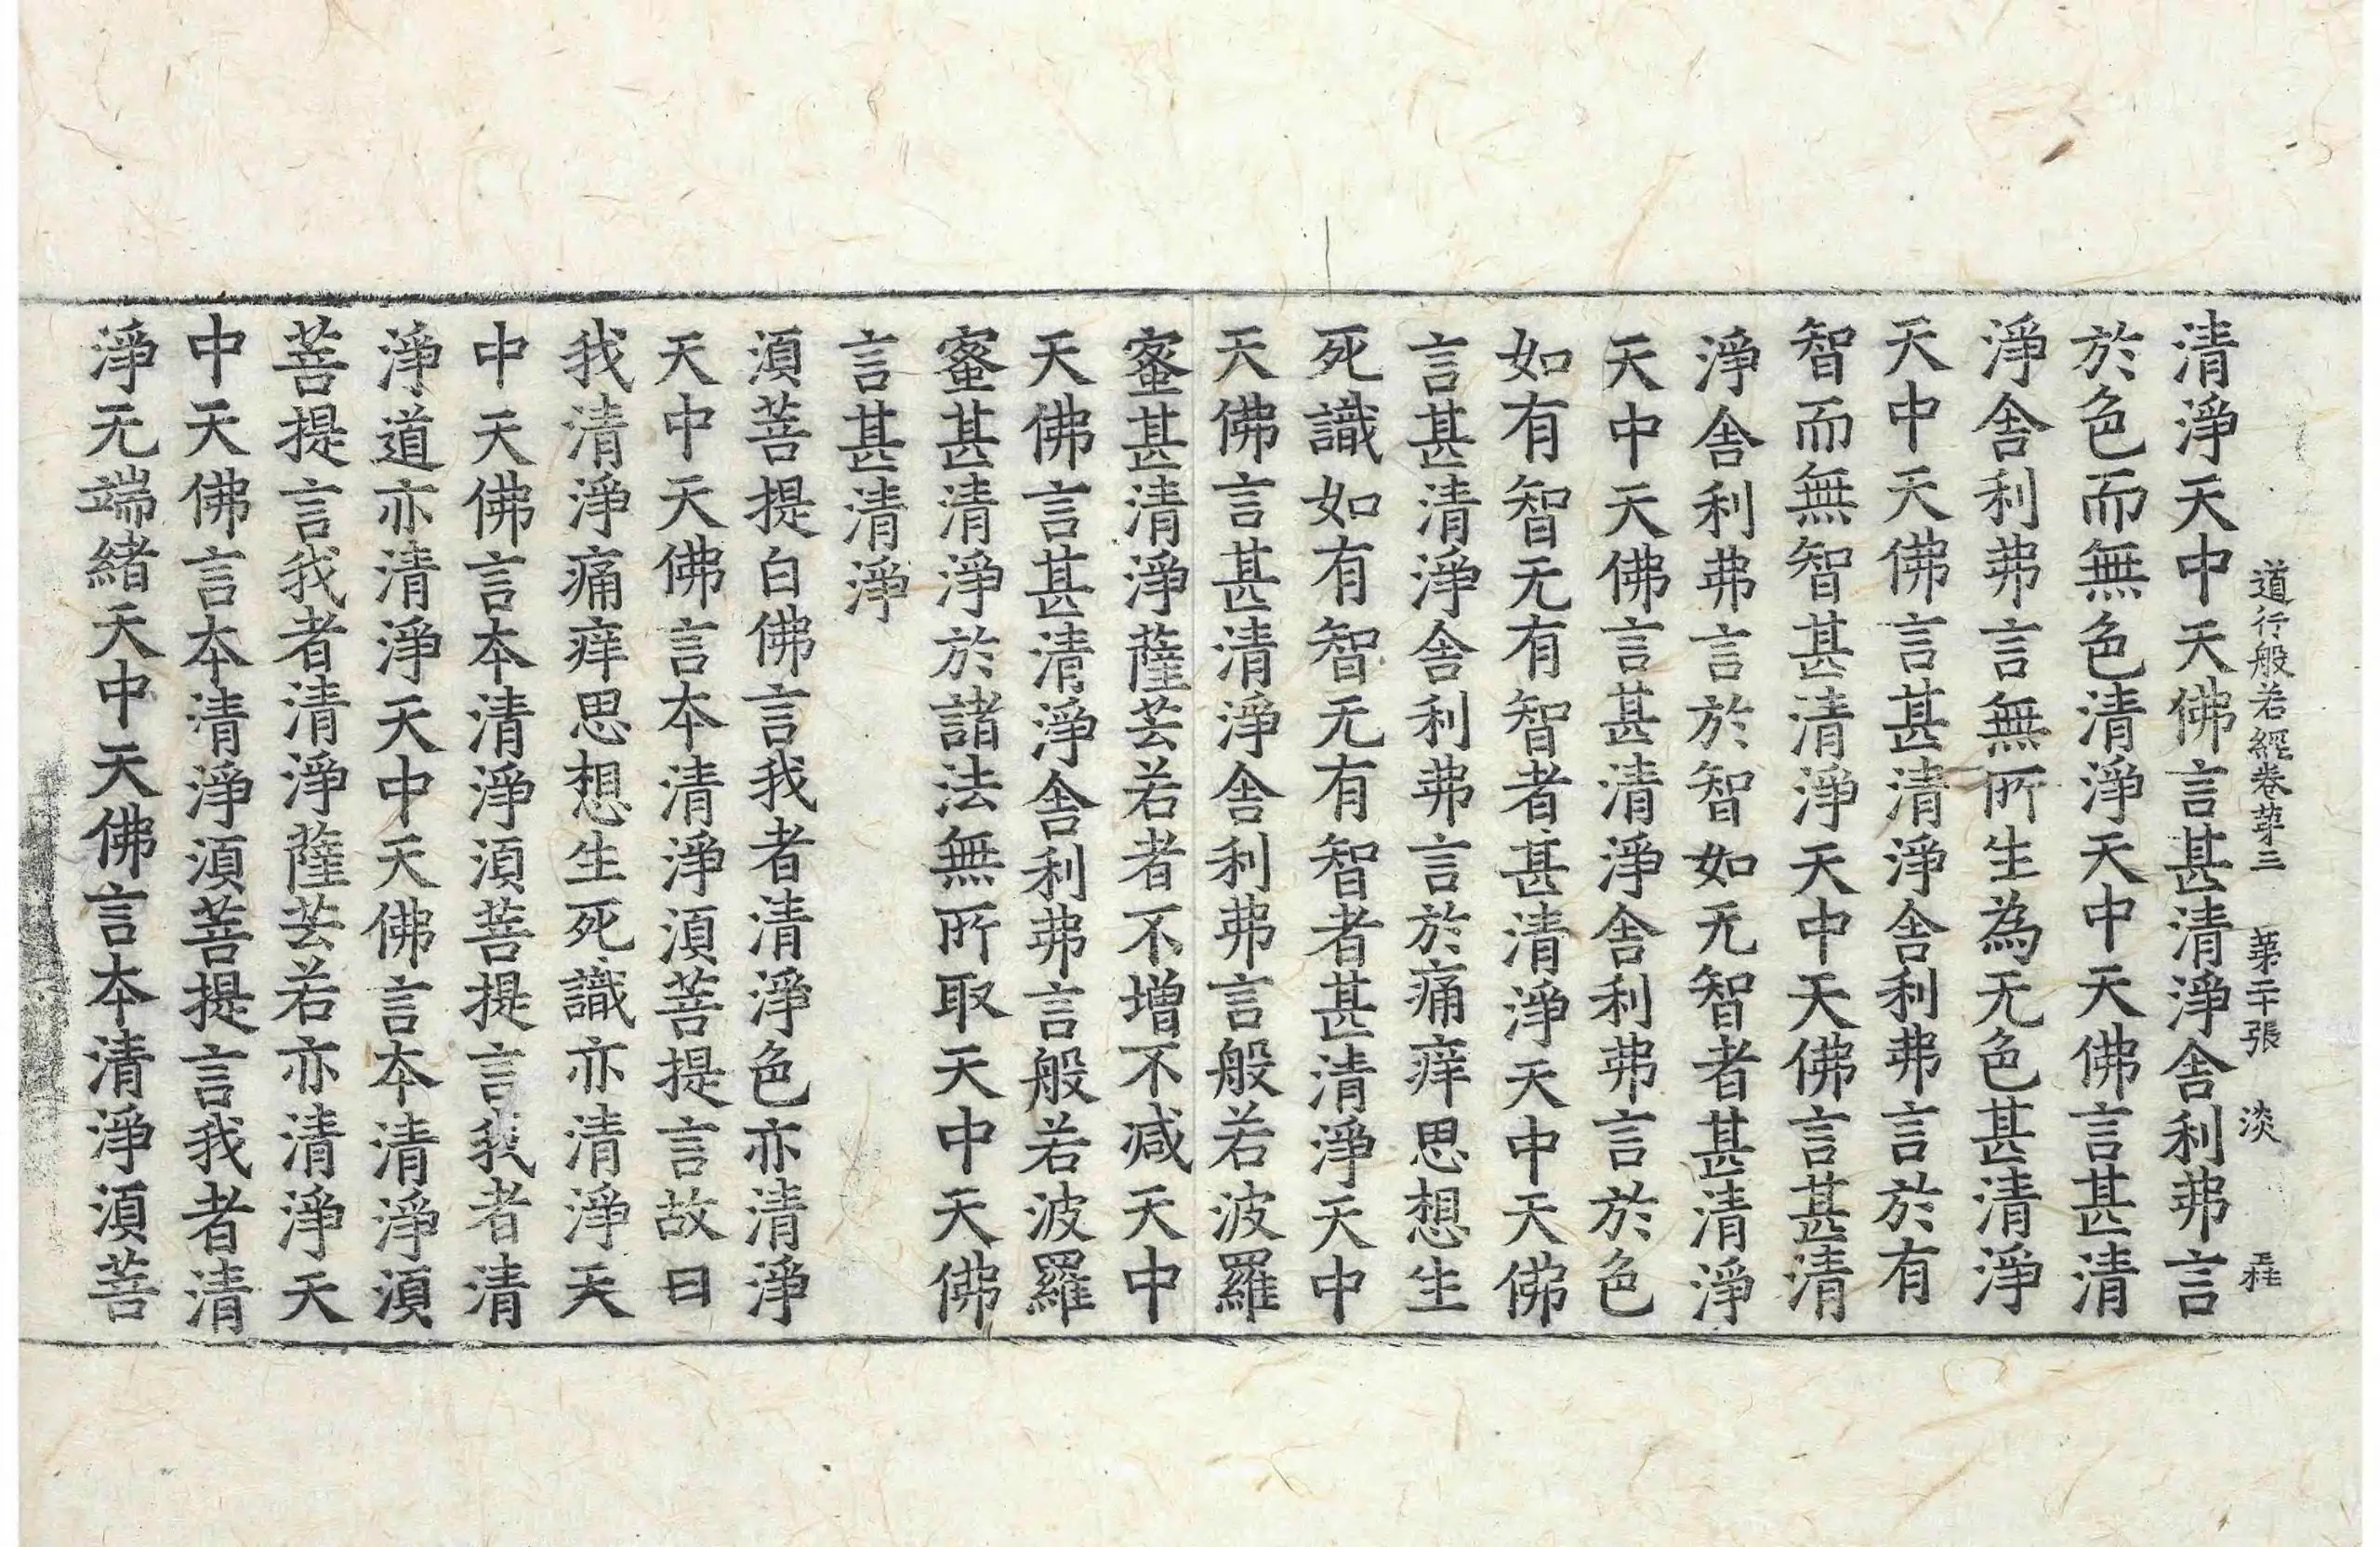 道行般若經卷苐三 苐二十張 淡
清淨天中天佛言甚清淨舍利弗言
於色而無色清淨天中天佛言甚清
淨舍利弗言無所生為无色甚清淨
天中天佛言甚清淨舍利弗言於有
智而無智甚清淨天中天佛言甚清
淨舍利弗言於智如无智者甚清淨
天中天佛言甚清淨舍利弗言於色
如有智无有智者甚清淨天中天佛
言甚清淨舍利弗言於痛痒思想生
死識如有智无有智者甚清淨天中
天佛言甚清淨舍利弗言般若波羅
蜜甚清淨薩芸若者不增不減天中
天佛言甚清淨舍利弗言般若波羅
蜜甚清淨於諸法無所取天中天佛
言甚清淨
須菩提白佛言我者清淨色亦清淨
天中天佛言本清淨須菩提言故曰
我清淨痛痒思想生死識亦清淨天
中天佛言本清淨須菩提言我者清
淨道亦清淨天中天佛言本清淨須
菩提言我者清淨薩芸若亦清淨天
中天佛言本清淨須菩提言我者清
淨无端緒天中天佛言本清淨須菩